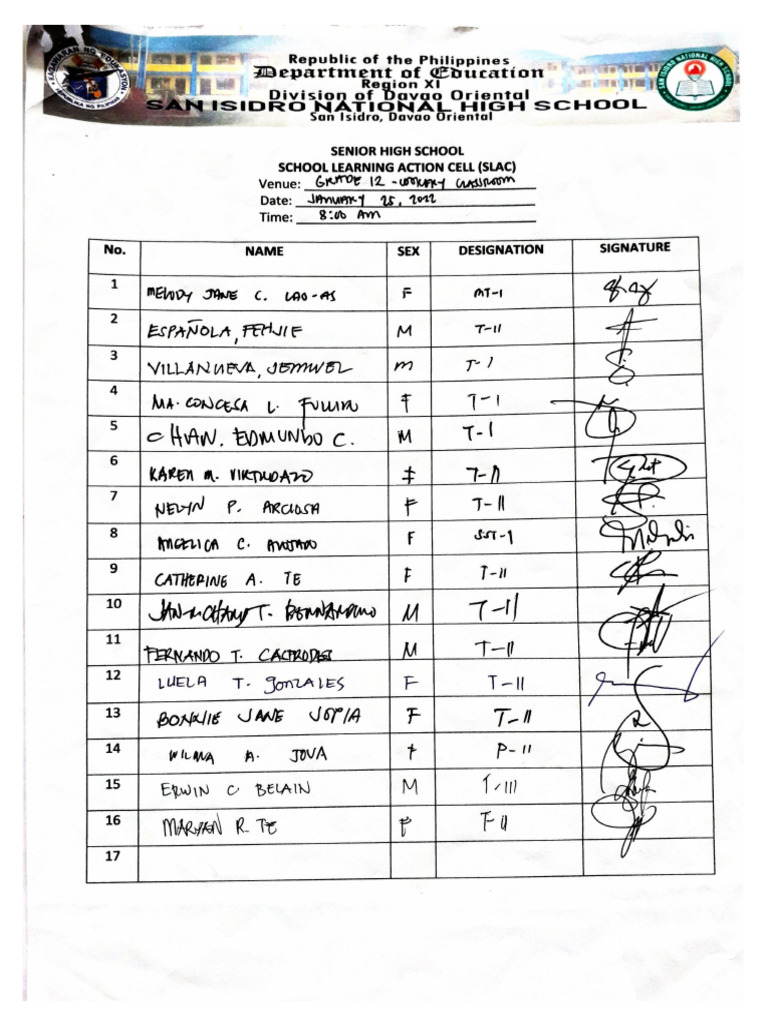 Republic of the Philippines
Department of Education
Region XI
Division of Davao Oriental
SAN ISIDRO NATIONAL HIGH SCHOOL
San Isidro, Davao Oriental
SENIOR HIGH SCHOOL
SCHOOL LEARNING ACTION CELL (SLAC)
Venue: GRADE 12 - COOKERY CLASSROOM
Date: JANUARY 25, 2022
Time: 8:00 AM
No. NAME SEX DESIGNATION SIGNATURE
1 MELODY JANE C. LAO-AS F MT-1
2 ESPAÑOLA, FEHJIE M T-II
3 VILLANUEVA, JEMWEL M T-I
4 MA. CONCESA L. F T-I
5 CHAN, EDMUNDO C. M T-I
6 KAREN M. VIRTUDAZO F T-II
7 NELYN P. ARCIOSA F T-II
8 ANGELICA C. F SST-1
9 CATHERINE A. TE F T-II
10 T. M T-II
11 FERNANDO T. M T-II
12 LUELA T. GONZALES F T-II
13 BONNIE JANE JOPIA F T-II
14 WILMA A. JOVA F P-II
15 ERWIN C BELAIN M T-III
16 MARYAN R. TE F T-II
17